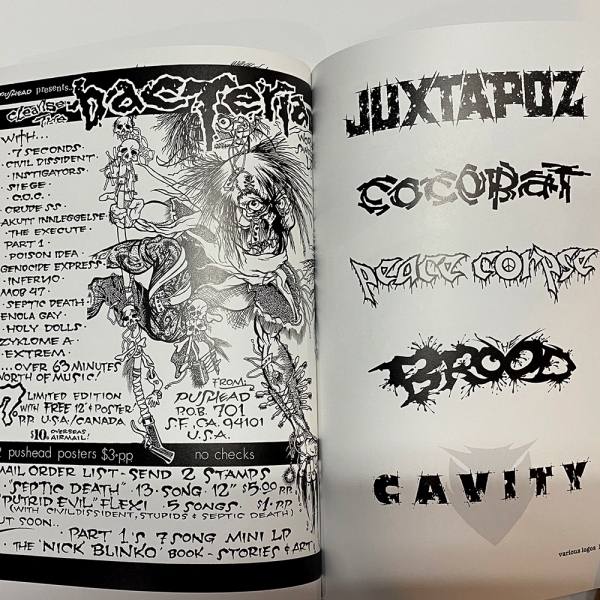 PUSHEAD presents...
cleanse the bacteria
WITH...
· 7 SECONDS ·
· CIVIL DISSIDENT ·
· INSTIGATORS ·
· SIEGE ·
· C.O.C. ·
· CRUDE SS ·
AKUTT INNLEGGELSE
· THE EXECUTE ·
· PART 1 ·
· POISON IDEA ·
GENOCIDE EXPRESS
· INFERNO ·
MOB 47 ·
· SEPTIC DEATH ·
ENOLA GAY ·
· HOLY DOLLS ·
ZYKLOME A ·
· EXTREM ·
...OVER 63 MINUTES
WORTH OF MUSIC!
LIMITED EDITION
WITH FREE 12" & POSTER
P.P. U.S.A./CANADA
$10. OVERSEAS AIRMAIL!
FROM:
PUSHEAD
P.O.B. 701
S.F., CA. 94101
U.S.A.
2 pushead posters $3·pp no checks
MAIL ORDER LIST - SEND 2 STAMPS
"SEPTIC DEATH" · 13 · SONG · 12" $5.00 P.P.
"PUTRID EVIL" FLEXI · 5 SONGS · $1. PP.
(WITH CIVIL DISSIDENT, STUPIDS & SEPTIC DEATH)
OUT SOON...
PART 1'S 7 SONG MINI LP
· THE "NICK BLINKO" BOOK - STORIES & ART
JUXTAPOZ
COCOBAT
peace corpse
BROOD
CAVITY
various logos